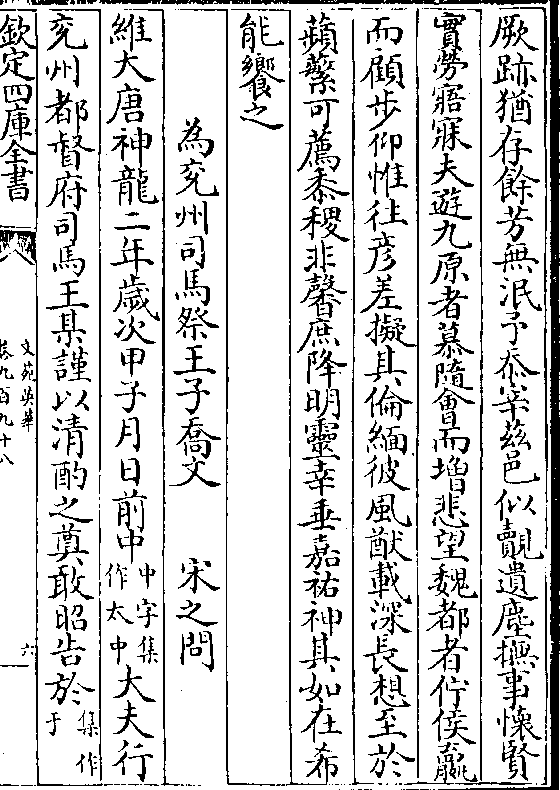 厥跡猶存餘芳無泯予忝宰兹邑似覿遺塵撫事懷賢
實勞寤寐夫遊九原者慕隨會而增悲望魏都者佇侯嬴
而顧步仰惟往彦差擬其倫緬彼風猷載深長想至於
蘋蘩可薦黍稷非馨庶降明靈幸垂嘉祐神其如在希
能饗之
為兖州司馬祭王子喬文 宋之問
維大唐神龍二年歲次甲子月日前中中字集作太中大夫行
兖州都督府司馬王某謹以清酌之奠敢昭告於集作于
欽定四庫全書
文苑英華
卷九百九十八
六